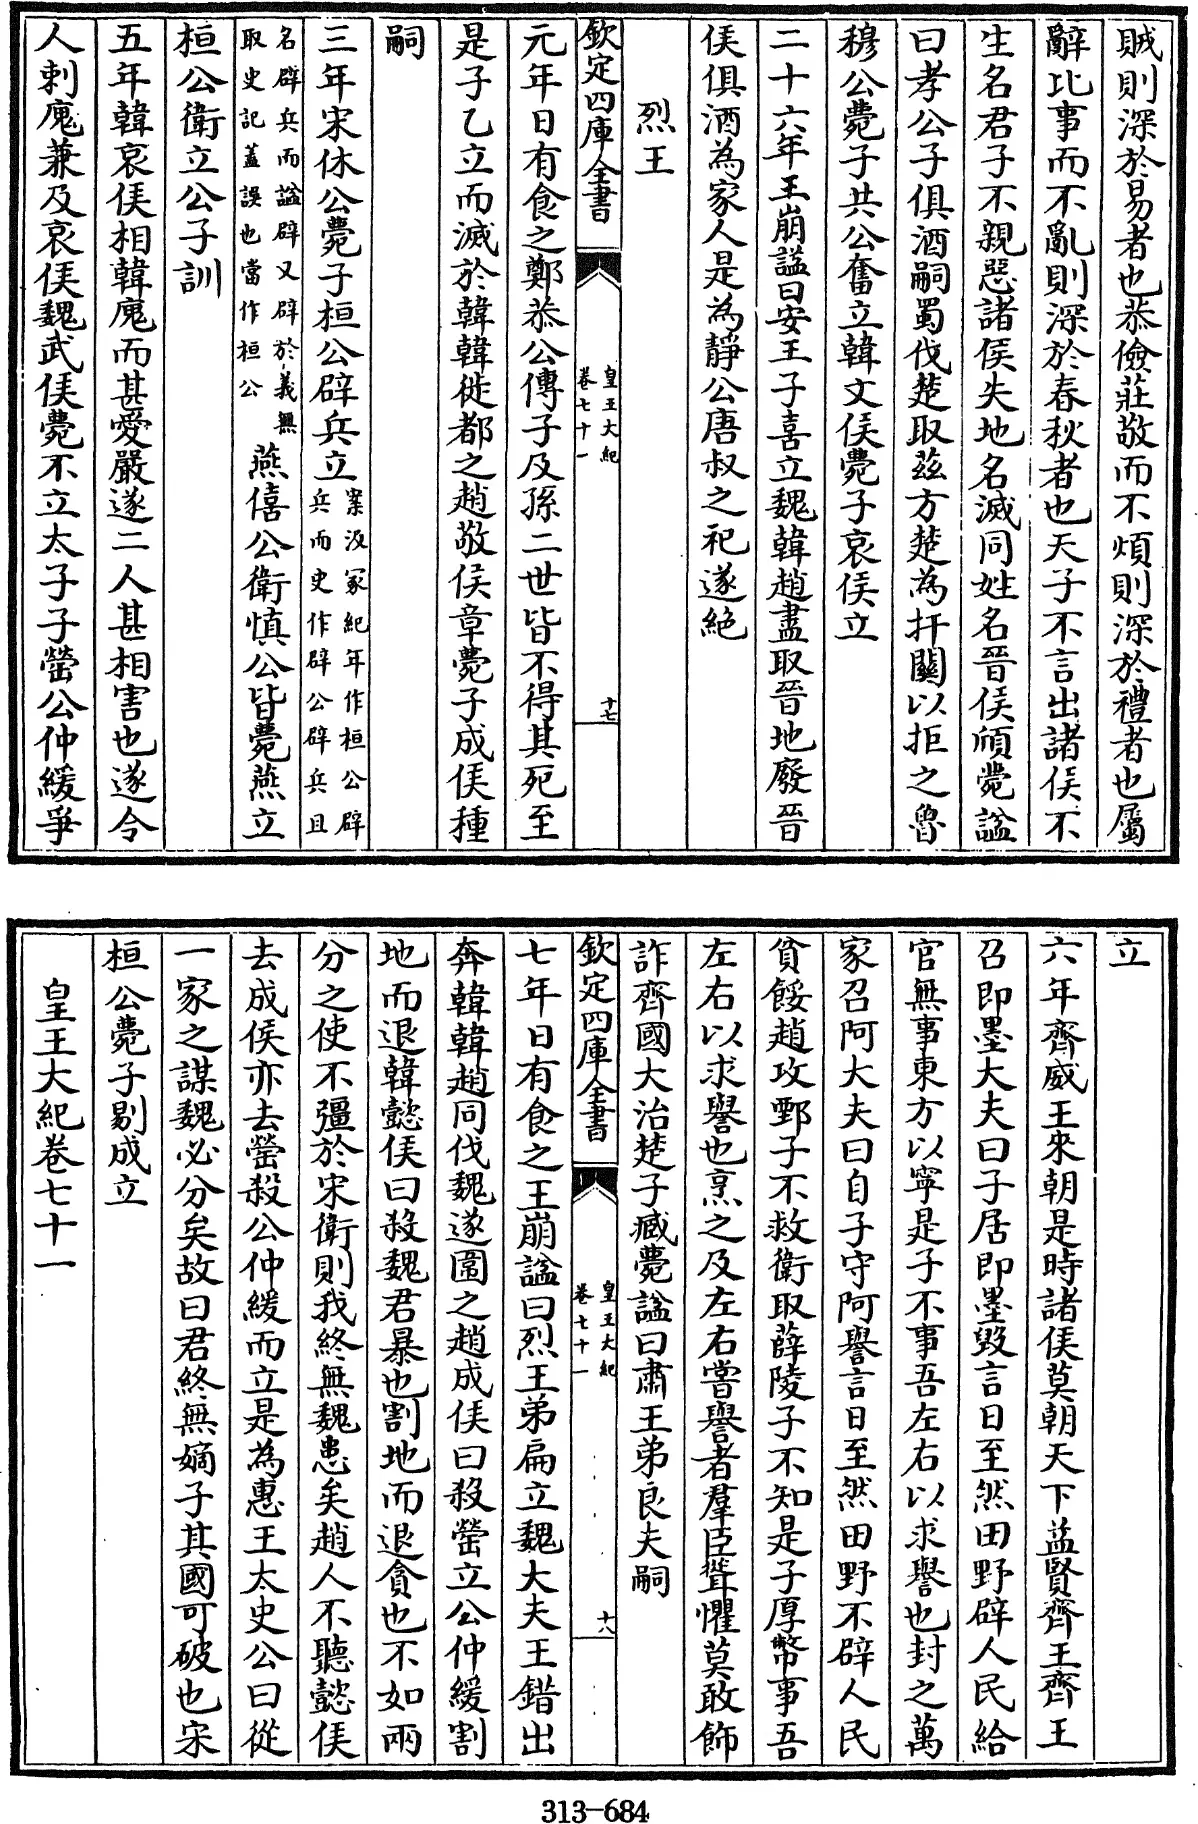 賊則深於易者也恭儉莊敬而不煩則深於禮者也屬
辭比事而不亂則深於春秋者也天子不言出諸侯不
生名君子不親惡諸侯失地名滅同姓名晉侯頎薨諡
曰孝公子俱酒嗣蜀伐楚取茲方楚為扞關以拒之魯
穆公薨子共公奮立韓文侯薨子哀侯立
二十六年王崩諡曰安王子喜立魏韓趙盡取晉地廢晉
侯俱酒為家人是為靜公唐叔之祀遂絶
烈王
欽定四庫全書
皇王大紀
卷七十一
十七
元年日有食之鄭恭公傳子及孫二世皆不得其死至
是子乙立而滅於韓韓徙都之趙敬侯章薨子成侯種
嗣
三年宋休公薨子桓公辟兵立案汲冡紀年作桓公辟
兵而史作辟公辟兵且
名辟兵而諡辟又辟於義無
取史記蓋誤也當作桓公
燕僖公衛慎公皆薨燕立
桓公衛立公子訓
五年韓哀侯相韓廆而甚愛嚴遂二人甚相害也遂令
人刺廆兼及哀侯魏武侯薨不立太子子罃公仲緩爭
立
六年齊威王來朝是時諸侯莫朝天下益賢齊王齊王
召即墨大夫曰子居即墨毀言日至然田野辟人民給
官無事東方以寧是子不事吾左右以求譽也封之萬
家召阿大夫曰自子守阿譽言日至然田野不辟人民
貧餒趙攻鄄子不救衛取薛陵子不知是子厚幣事吾
左右以求譽也烹之及左右嘗譽者羣臣聳懼莫敢飾
詐齊國大治楚子臧薨諡曰肅王弟良夫嗣
欽定四庫全書
皇王大紀
卷七十一
十八
七年日有食之王崩諡曰烈王弟扁立魏大夫王錯出
奔韓韓趙同伐魏遂圍之趙成侯曰殺罃立公仲緩割
地而退韓懿侯曰殺魏君暴也割地而退貪也不如兩
分之使不彊於宋衛則我終無魏患矣趙人不聽懿侯
去成侯亦去罃殺公仲緩而立是為惠王太史公曰從
一家之謀魏必分矣故曰君終無嫡子其國可破也宋
桓公薨子剔成立
皇王大紀卷七十一
313-684